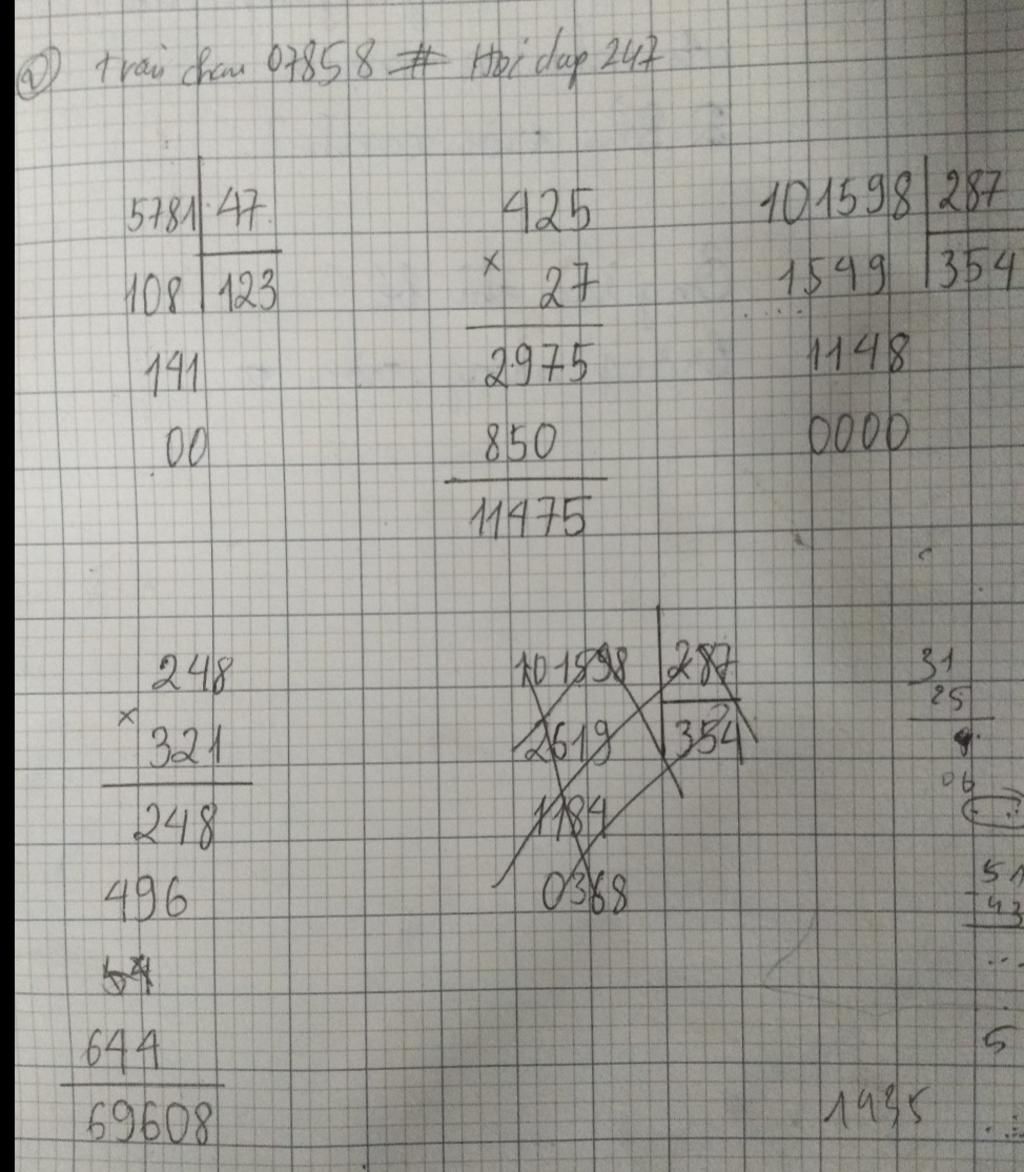 trai chau 07858 # Hoi dap 247
5781 47
108 123
141
00
425
× 27
2975
850
11475
101598 287
1549 354
1148
0000
248
× 321
248
496
644
69608
101598 287
2619 354
1184
0368
31
25
06
51
43
5
1435